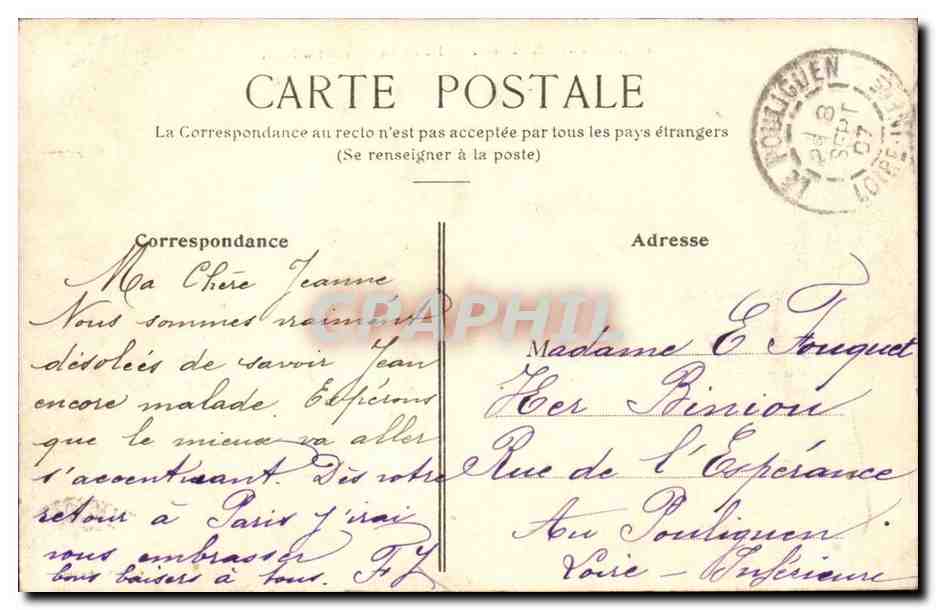 CARTE POSTALE
La Correspondance au recto n'est pas acceptée par tous les pays étrangers
(Se renseigner à la poste)
LE POULIGUEN
8
SEPT
07
LOIRE-INFRE
Correspondance
Ma Chère Jeanne
Nous sommes vraiment
désolées de savoir Jean
encore malade. Espérons
que le mieux va aller
s'accentuant. Dès votre
retour à Paris j'irai
vous embrasser
bons baisers à tous. FJ
CPAPHIL
Adresse
Madame E Fouquet
Ker Biniou
Rue de l'Espérance
Au Pouliguen
Loire - Inférieure